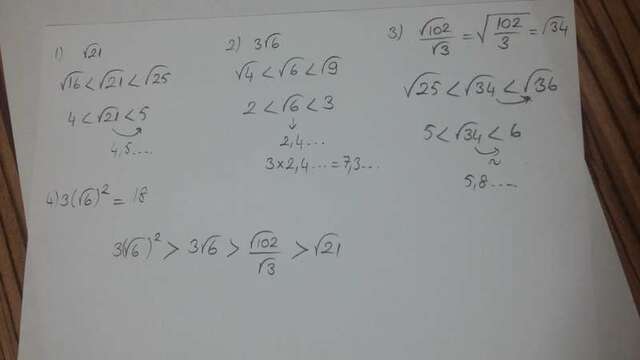 1) √21
√16 < √21 < √25
4 < √21 < 5
4,5....
2) 3√6
√4 < √6 < √9
2 < √6 < 3
2,4...
3×2,4...=7,3...
3) √102/√3 = √102/3 = √34
√25 < √34 < √36
5 < √34 < 6
5,8....
4) 3(√6)² = 18
3√6)² > 3√6 > √102/√3 > √21